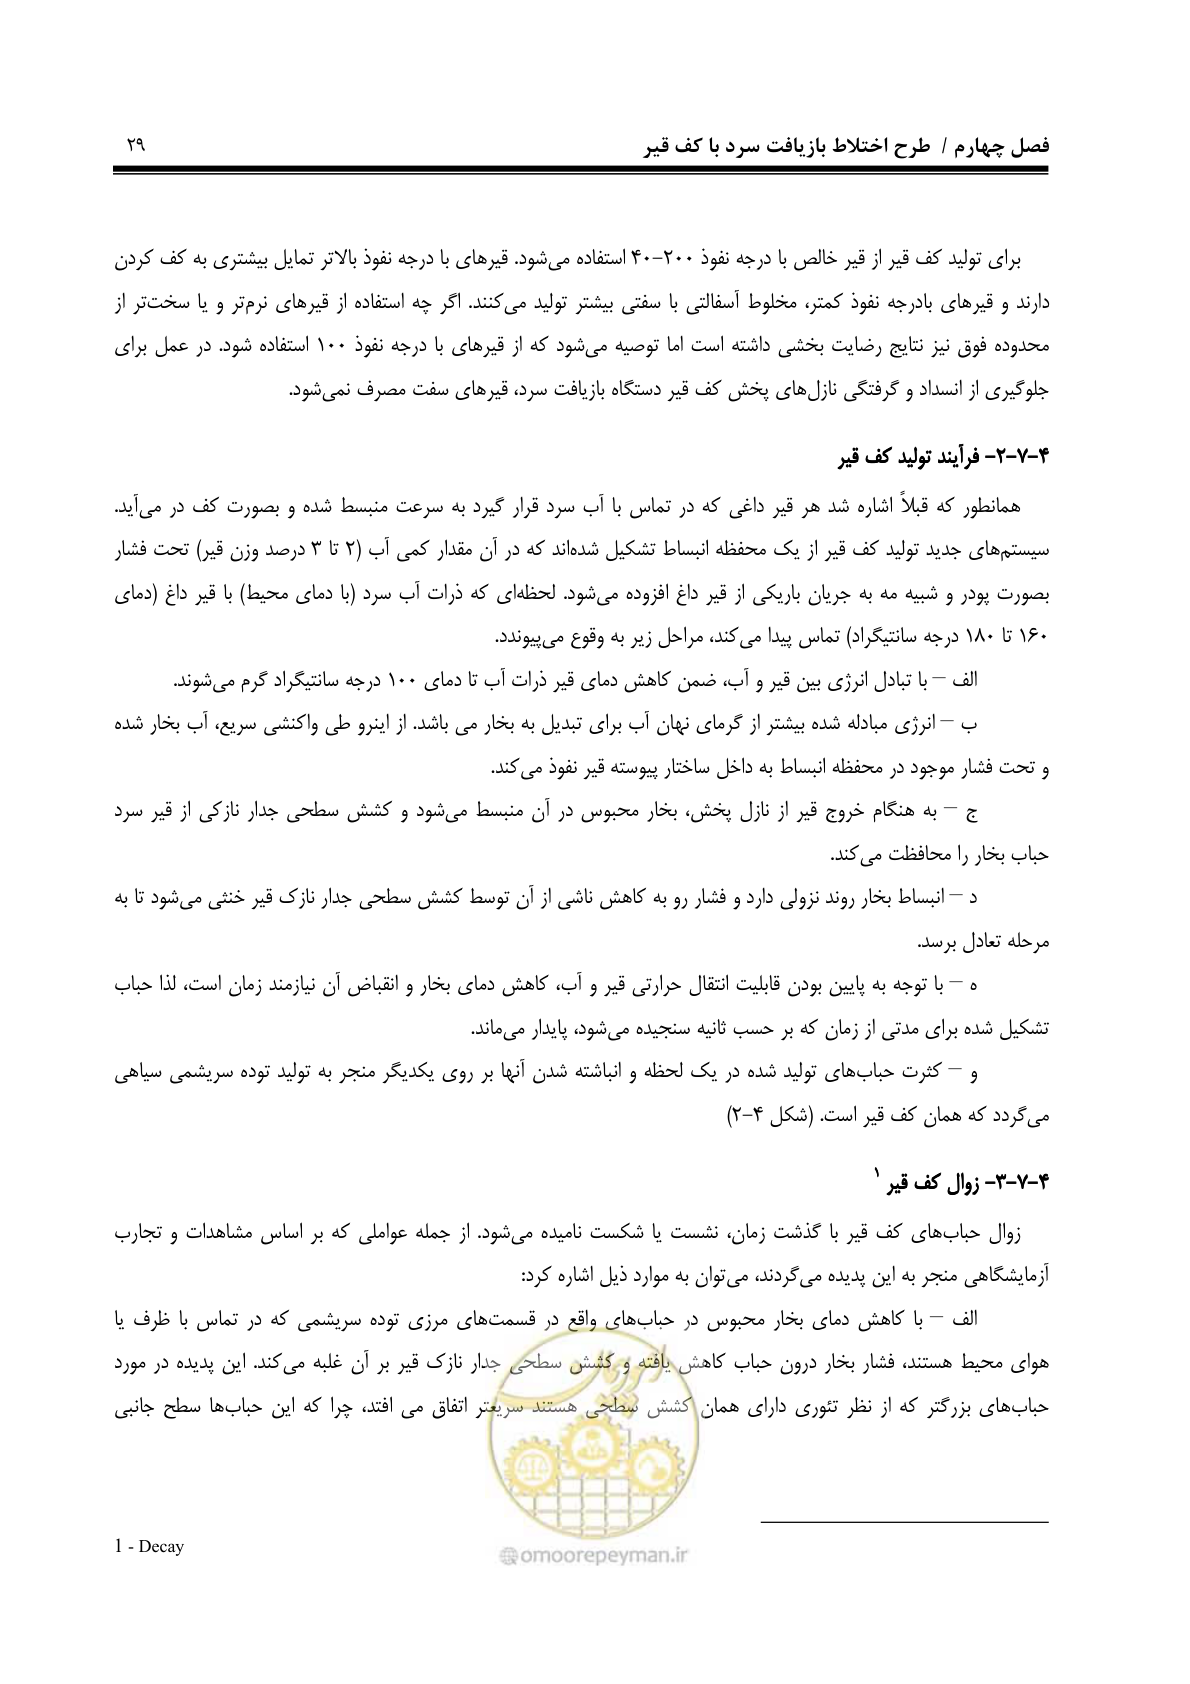 فصل چهارم / طرح اختلاط بازیافت سرد با کف قیر ۲۹
برای تولید کف قیر از قیر خالص با درجه نفوذ ۲۰۰-۴۰ استفاده می‌شود. قیرهای با درجه نفوذ بالاتر تمایل بیشتری به کف کردن
دارند و قیرهای بادرجه نفوذ کمتر، مخلوط آسفالتی با سفتی بیشتر تولید می‌کنند. اگر چه استفاده از قیرهای نرم‌تر و یا سخت‌تر از
محدوده فوق نیز نتایج رضایت بخشی داشته است اما توصیه می‌شود که از قیرهای با درجه نفوذ ۱۰۰ استفاده شود. در عمل برای
جلوگیری از انسداد و گرفتگی نازل‌های پخش کف قیر دستگاه بازیافت سرد، قیرهای سفت مصرف نمی‌شود.
۴-۷-۲- فرآیند تولید کف قیر
همانطور که قبلاً اشاره شد هر قیر داغی که در تماس با آب سرد قرار گیرد به سرعت منبسط شده و بصورت کف در می‌آید.
سیستم‌های جدید تولید کف قیر از یک محفظه انبساط تشکیل شده‌اند که در آن مقدار کمی آب (۲ تا ۳ درصد وزن قیر) تحت فشار
بصورت پودر و شبیه مه به جریان باریکی از قیر داغ افزوده می‌شود. لحظه‌ای که ذرات آب سرد (با دمای محیط) با قیر داغ (دمای
۱۶۰ تا ۱۸۰ درجه سانتیگراد) تماس پیدا می‌کند، مراحل زیر به وقوع می‌پیوندد.
الف – با تبادل انرژی بین قیر و آب، ضمن کاهش دمای قیر ذرات آب تا دمای ۱۰۰ درجه سانتیگراد گرم می‌شوند.
ب – انرژی مبادله شده بیشتر از گرمای نهان آب برای تبدیل به بخار می باشد. از اینرو طی واکنشی سریع، آب بخار شده
و تحت فشار موجود در محفظه انبساط به داخل ساختار پیوسته قیر نفوذ می‌کند.
ج – به هنگام خروج قیر از نازل پخش، بخار محبوس در آن منبسط می‌شود و کشش سطحی جدار نازکی از قیر سرد
حباب بخار را محافظت می‌کند.
د – انبساط بخار روند نزولی دارد و فشار رو به کاهش ناشی از آن توسط کشش سطحی جدار نازک قیر خنثی می‌شود تا به
مرحله تعادل برسد.
ه – با توجه به پایین بودن قابلیت انتقال حرارتی قیر و آب، کاهش دمای بخار و انقباض آن نیازمند زمان است، لذا حباب
تشکیل شده برای مدتی از زمان که بر حسب ثانیه سنجیده می‌شود، پایدار می‌ماند.
و – کثرت حباب‌های تولید شده در یک لحظه و انباشته شدن آنها بر روی یکدیگر منجر به تولید توده سریشمی سیاهی
می‌گردد که همان کف قیر است. (شکل ۴-۲)
۴-۷-۳- زوال کف قیر ۱
زوال حباب‌های کف قیر با گذشت زمان، نشست یا شکست نامیده می‌شود. از جمله عواملی که بر اساس مشاهدات و تجارب
آزمایشگاهی منجر به این پدیده می‌گردند، می‌توان به موارد ذیل اشاره کرد:
الف – با کاهش دمای بخار محبوس در حباب‌های واقع در قسمت‌های مرزی توده سریشمی که در تماس با ظرف یا
هوای محیط هستند، فشار بخار درون حباب کاهش یافته و کشش سطحی جدار نازک قیر بر آن غلبه می‌کند. این پدیده در مورد
حباب‌های بزرگتر که از نظر تئوری دارای همان کشش سطحی هستند سریعتر اتفاق می افتد، چرا که این حباب‌ها سطح جانبی
امور پیمان
1 - Decay
@omoorepeyman.ir